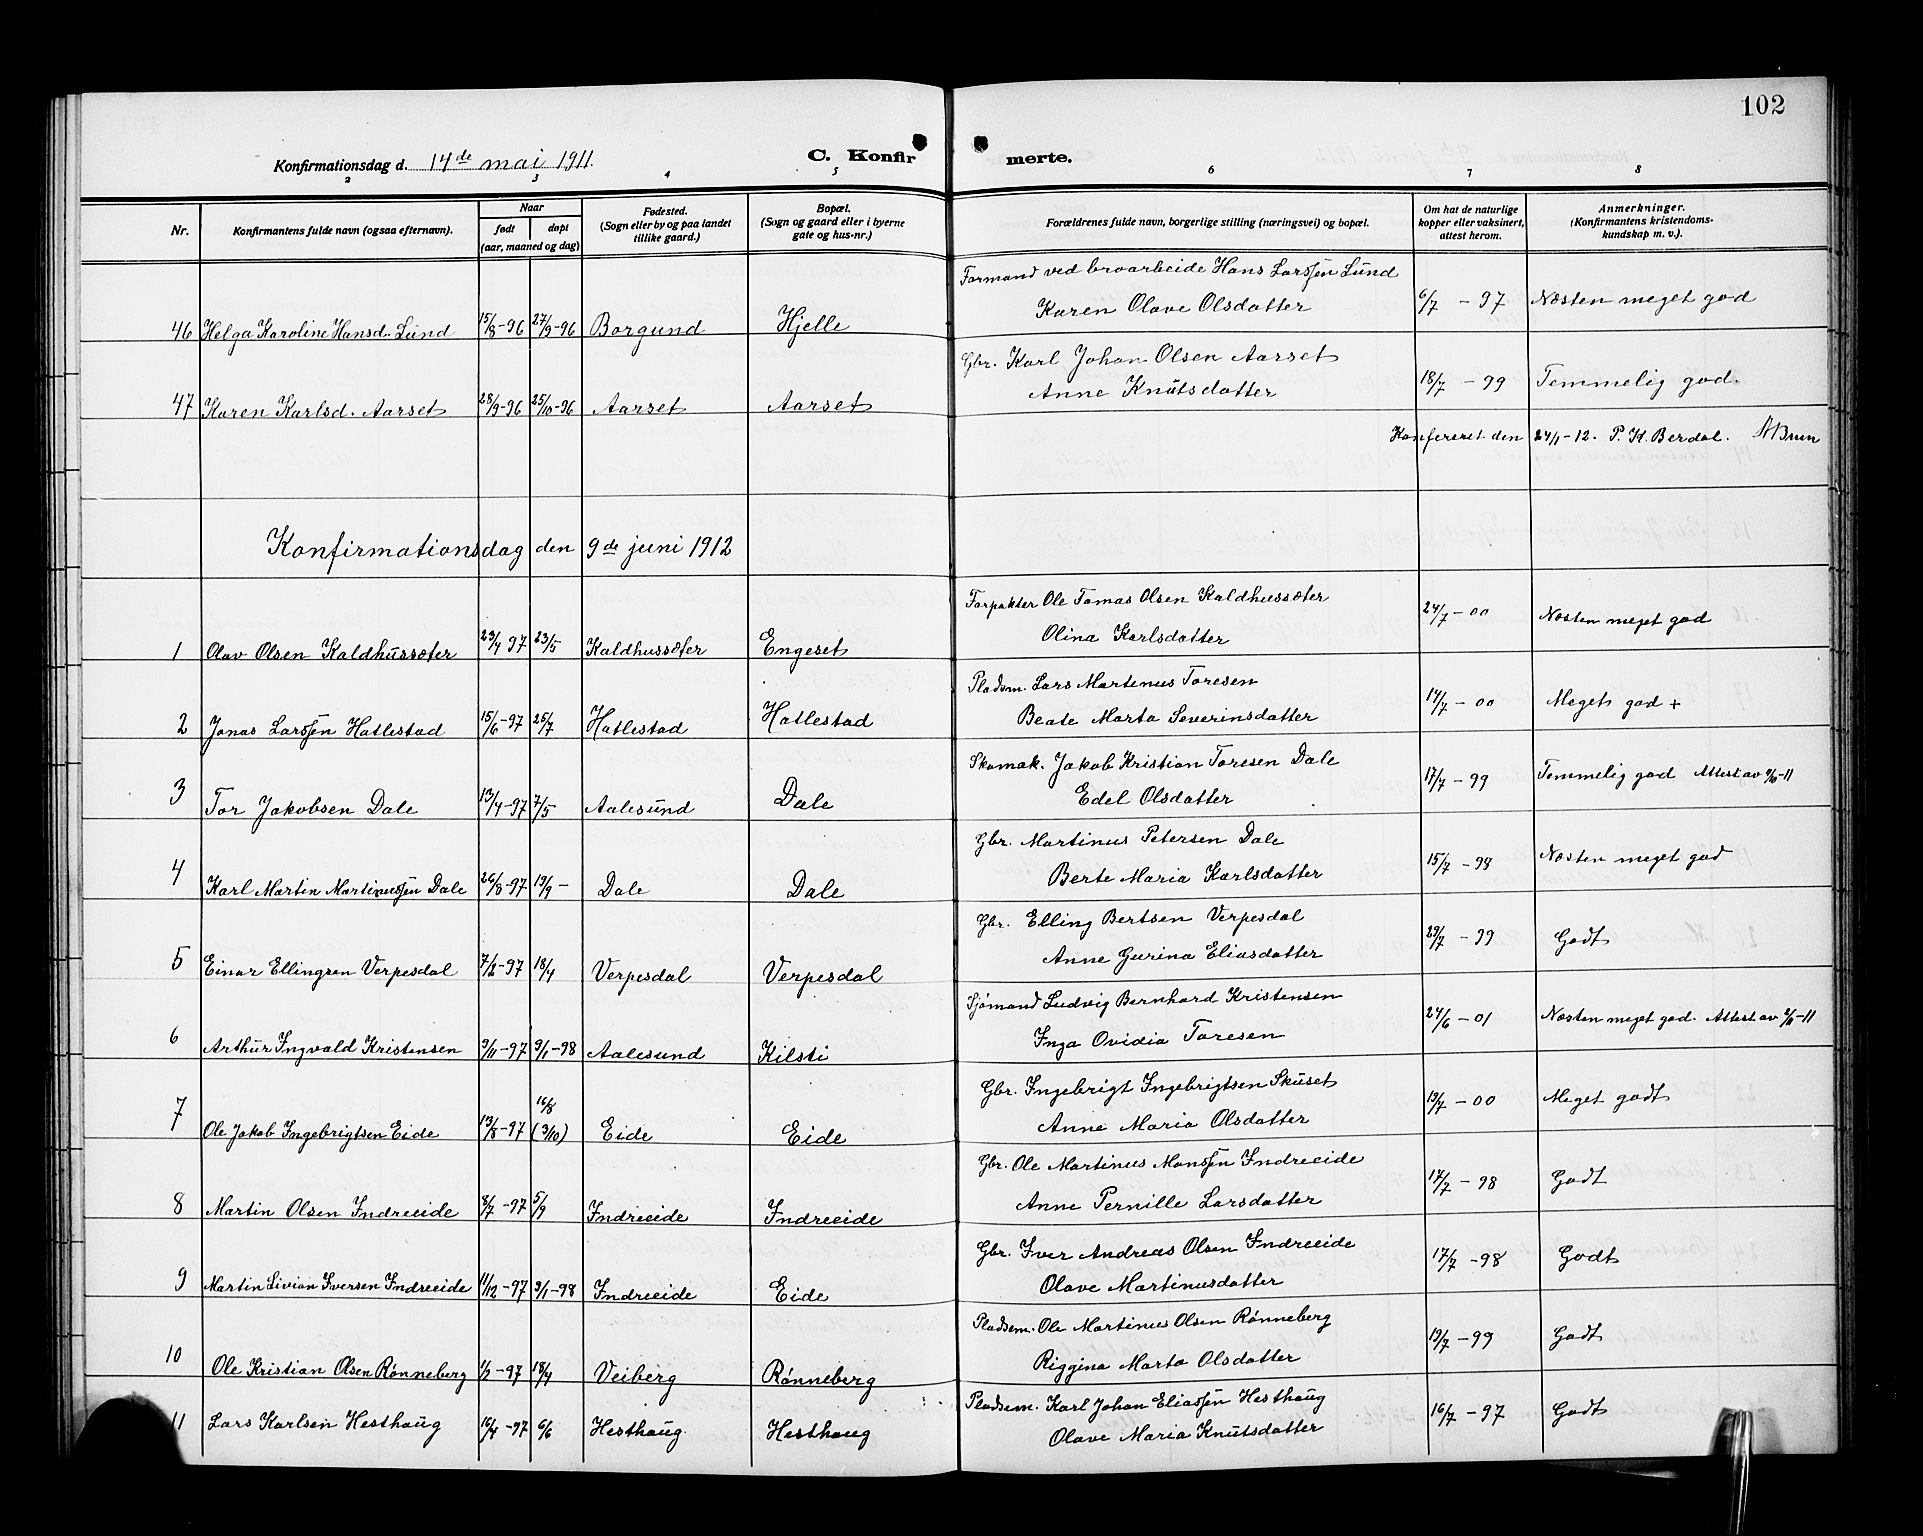 102
Konfirmationsdag d. 14de mai 1911. C. Konfirmerte.
2 3 4 5 6 7 8
Nr. Konfirmantens fulde navn (ogsaa efternavn). Naar født døpt (aar, maaned og dag) Fødested. (Sogn eller by og paa landet tillike gaard.) Bopæl. (Sogn og gaard eller i byerne gate og hus-nr.) Forældrenes fulde navn, borgerlige stilling (næringsvei) og bopæl. Om hat de naturlige kopper eller vaksinert, attest herom. Anmerkninger. (Konfirmantens kristendoms-kundskap m. v.).
Formand ved broarbeide Hans Larssen Lund
46 Helga Karoline Hansd. Lund 15/8-96 27/9-96 Borgund Hjelle Karen Olave Olsdatter 6/7 - 97 Næsten meget god
Gbr. Karl Johan Olsen Aarset
47 Karen Karlsd. Aarset 28/9-96 25/10-96 Aarset Aarset Anne Knutsdatter 18/7 - 99 Temmelig god.
Konfereret den 24/1-12. P. K. Berdal. ABrun
Konfirmationsdag den 9de juni 1912
Forpakter Ole Tomas Olsen Kaldhussæter
1 Olav Olsen Kaldhussæter 23/4 97 23/5 Kaldhussæter Engeset Olina Karlsdatter 24/7 - 00 Næsten meget god
Pladsm. Lars Martinus Toresen
2 Jonas Larssen Hatlestad 15/6-97 25/7 Hatlestad Hatlestad Beate Marta Severinsdatter 14/7 - 00 Meget god +
Skomak. Jakob Kristian Toresen Dale
3 Tor Jakobsen Dale 13/4-97 7/5 Aalesund Dale Edel Olsdatter 17/7 - 99 Temmelig god Attest av
Gbr. Martinus Petersen Dale
4 Karl Martin Martinussen Dale 26/8-97 19/9 - Dale Dale Berte Maria Karlsdatter 15/7 - 98 Næsten meget god
Gbr. Elling Bertsen Verpesdal
5 Einar Ellingsen Verpesdal 7/2-97 18/4 Verpesdal Verpesdal Anne Gurina Eliasdatter 29/7 - 99 Godt
Sjømand Ludvig Bernhard Kristensen
6 Arthur Ingvald Kristensen 9/11-97 9/1-98 Aalesund Kilsti Inga Ovidia Toresen 24/6 - 01 Næsten meget god. Attest av
Gbr. Ingebrigt Ingebrigtsen Skuset
7 Ole Jakob Ingebrigtsen Eide 19/8-97 16/8 (3/10) Eide Eide Anne Maria Olsdatter 19/7 - 00 Meget godt
Gbr. Ole Martinus Monssen Indreeide
8 Martin Olsen Indreeide 8/7 -97 5/9 Indreeide Indreeide Anne Pernille Larsdatter 17/7 - 98 Godt
Gbr. Iver Andreas Olsen Indreeide
9 Martin Livian Iversen Indreeide 11/12-97 9/1-98 Indreeide Eide Olave Martinusdatter 17/7 -98 Godt
Pladsem. Ole Martinus Olsen Rønneberg
10 Ole Kristian Olsen Rønneberg 1/2-97 18/4 Veiberg Rønneberg Riggina Marta Olsdatter 19/7 -99 Godt
Pladsem. Karl Johan Eliassen Hesthaug
11 Lars Karlsen Hesthaug 16/4 -97 6/6 Hesthaug Hesthaug Olave Maria Knutsdatter 16/7 - 97 Godt